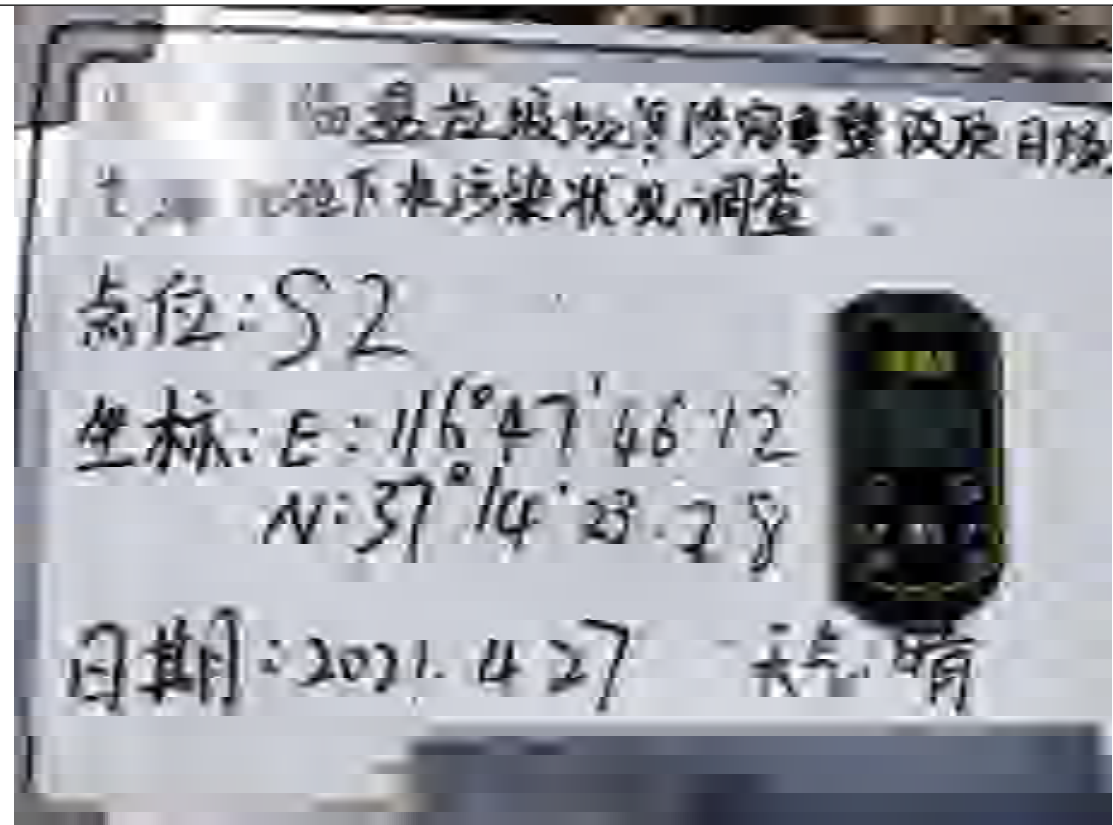 垃圾填埋场整改项目场
地下水污染状况调查
点位:S2
坐标:E:116°47'46.12"
N:37°14'23.28
日期:2021.4.27 天气:晴